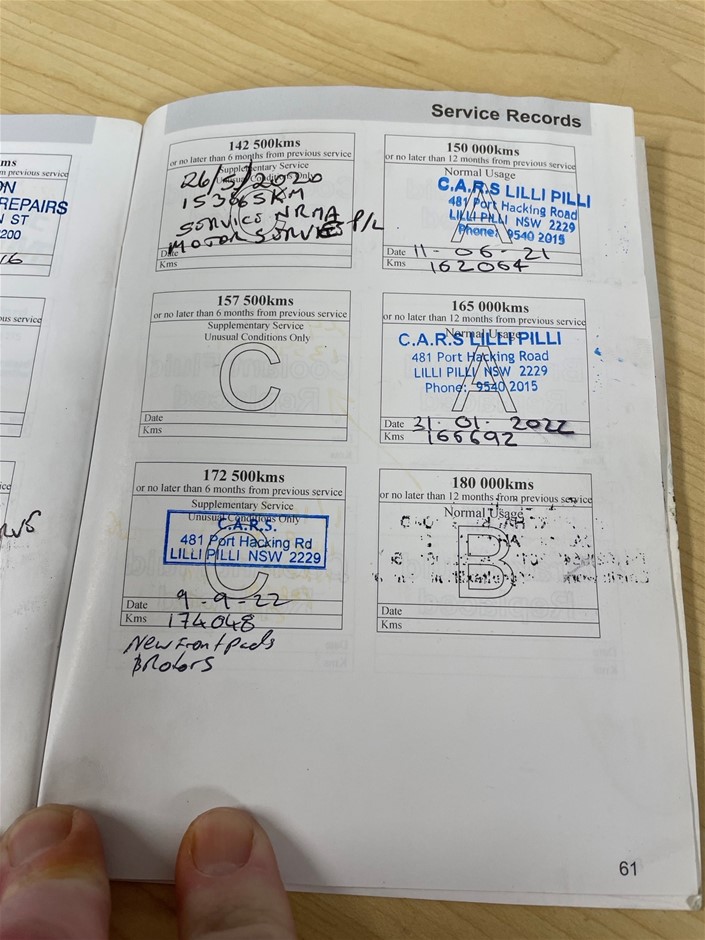 Service Records
ms
m previous service
ON
REPAIRS
N ST
200
16
us service
ice
142 500kms
or no later than 6 months from previous service
Supplementary Service
Unusual Conditions Only
C
26/5/2020
153865KM
SERVICE NRMA
MOTOR SERVICES P/L
Date
Kms
150 000kms
or no later than 12 months from previous service
Normal Usage
A
C.A.R.S LILLI PILLI
481 Port Hacking Road
LILLI PILLI NSW 2229
Phone: 9540 2015
Date 11-06-21
Kms 162064
157 500kms
or no later than 6 months from previous service
Supplementary Service
Unusual Conditions Only
C
Date
Kms
165 000kms
or no later than 12 months from previous service
Normal Usage
A
C.A.R.S LILLI PILLI
481 Port Hacking Road
LILLI PILLI NSW 2229
Phone: 9540 2015
Date 31.01.2022
Kms 166692
172 500kms
or no later than 6 months from previous service
Supplementary Service
Unusual Conditions Only
C
C.A.R.S.
481 Port Hacking Rd
LILLI PILLI NSW 2229
Date 9-9-22
Kms 174048
New Front Pads
& Rotors
180 000kms
or no later than 12 months from previous service
Normal Usage
B
Date
Kms
61